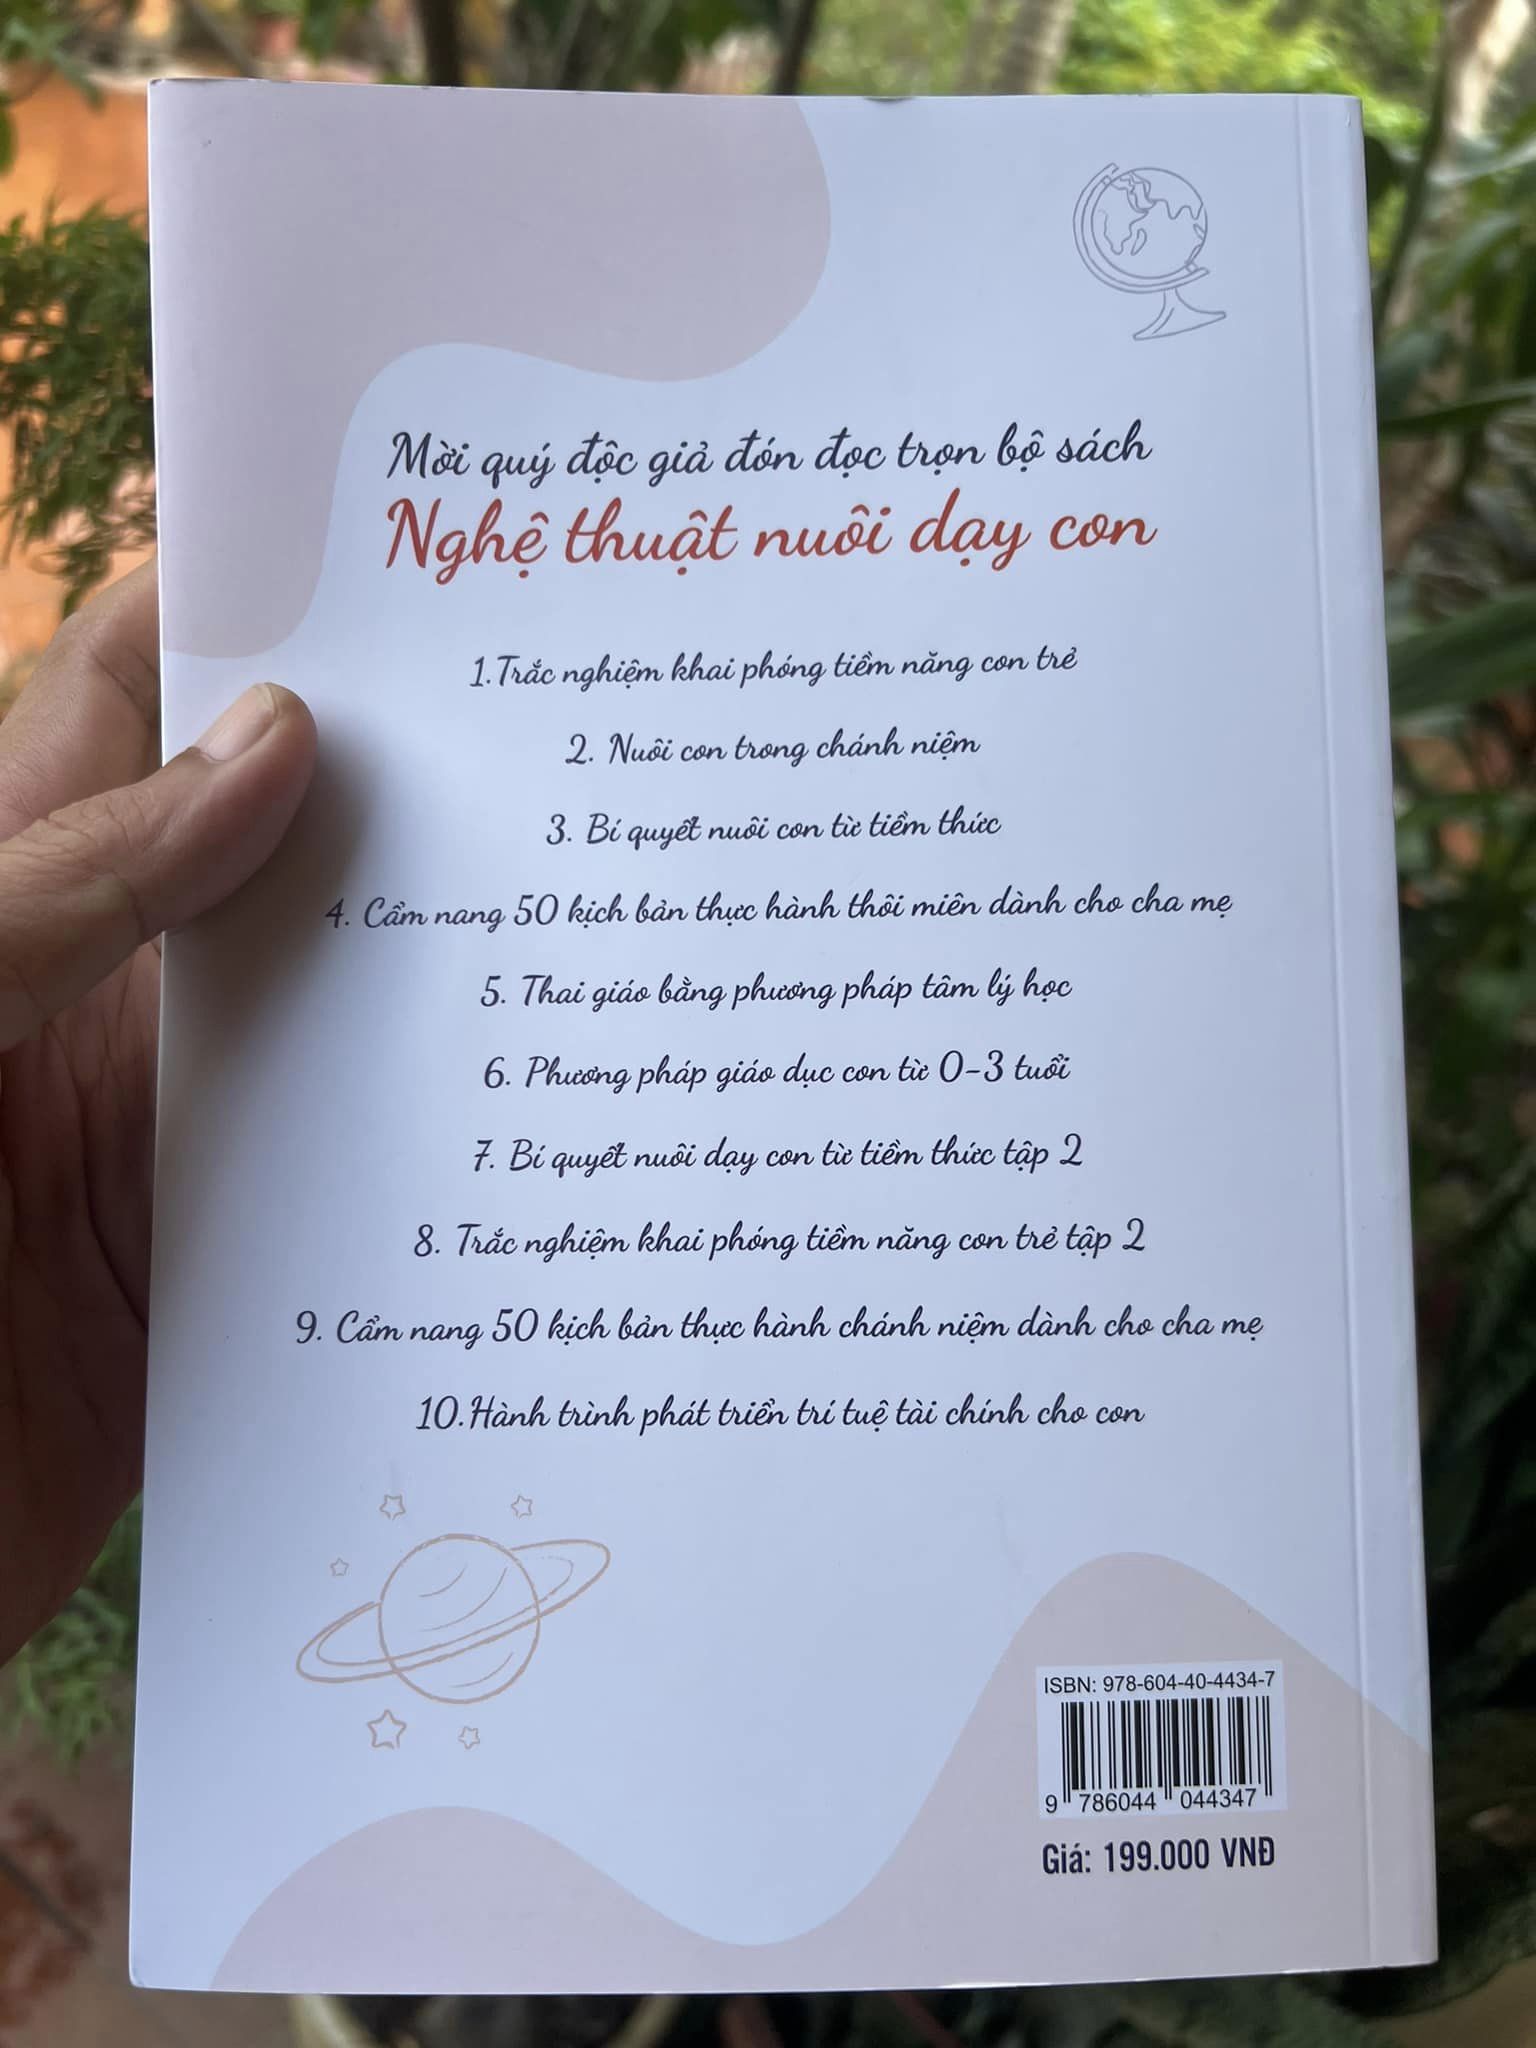 Mời quý độc giả đón đọc trọn bộ sách
Nghệ thuật nuôi dạy con
1.Trắc nghiệm khai phóng tiềm năng con trẻ
2. Nuôi con trong chánh niệm
3. Bí quyết nuôi con từ tiềm thức
4. Cẩm nang 50 kịch bản thực hành thôi miên dành cho cha mẹ
5. Thai giáo bằng phương pháp tâm lý học
6. Phương pháp giáo dục con từ 0-3 tuổi
7. Bí quyết nuôi dạy con từ tiềm thức tập 2
8. Trắc nghiệm khai phóng tiềm năng con trẻ tập 2
9. Cẩm nang 50 kịch bản thực hành chánh niệm dành cho cha mẹ
10.Hành trình phát triển trí tuệ tài chính cho con
ISBN: 978-604-40-4434-7
9 786044 044347
Giá: 199.000 VNĐ